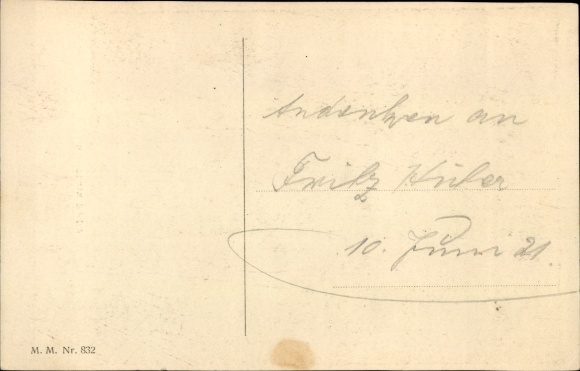 Andenken an
Fritz Huber
10. Juni 21.
M. M. Nr. 832